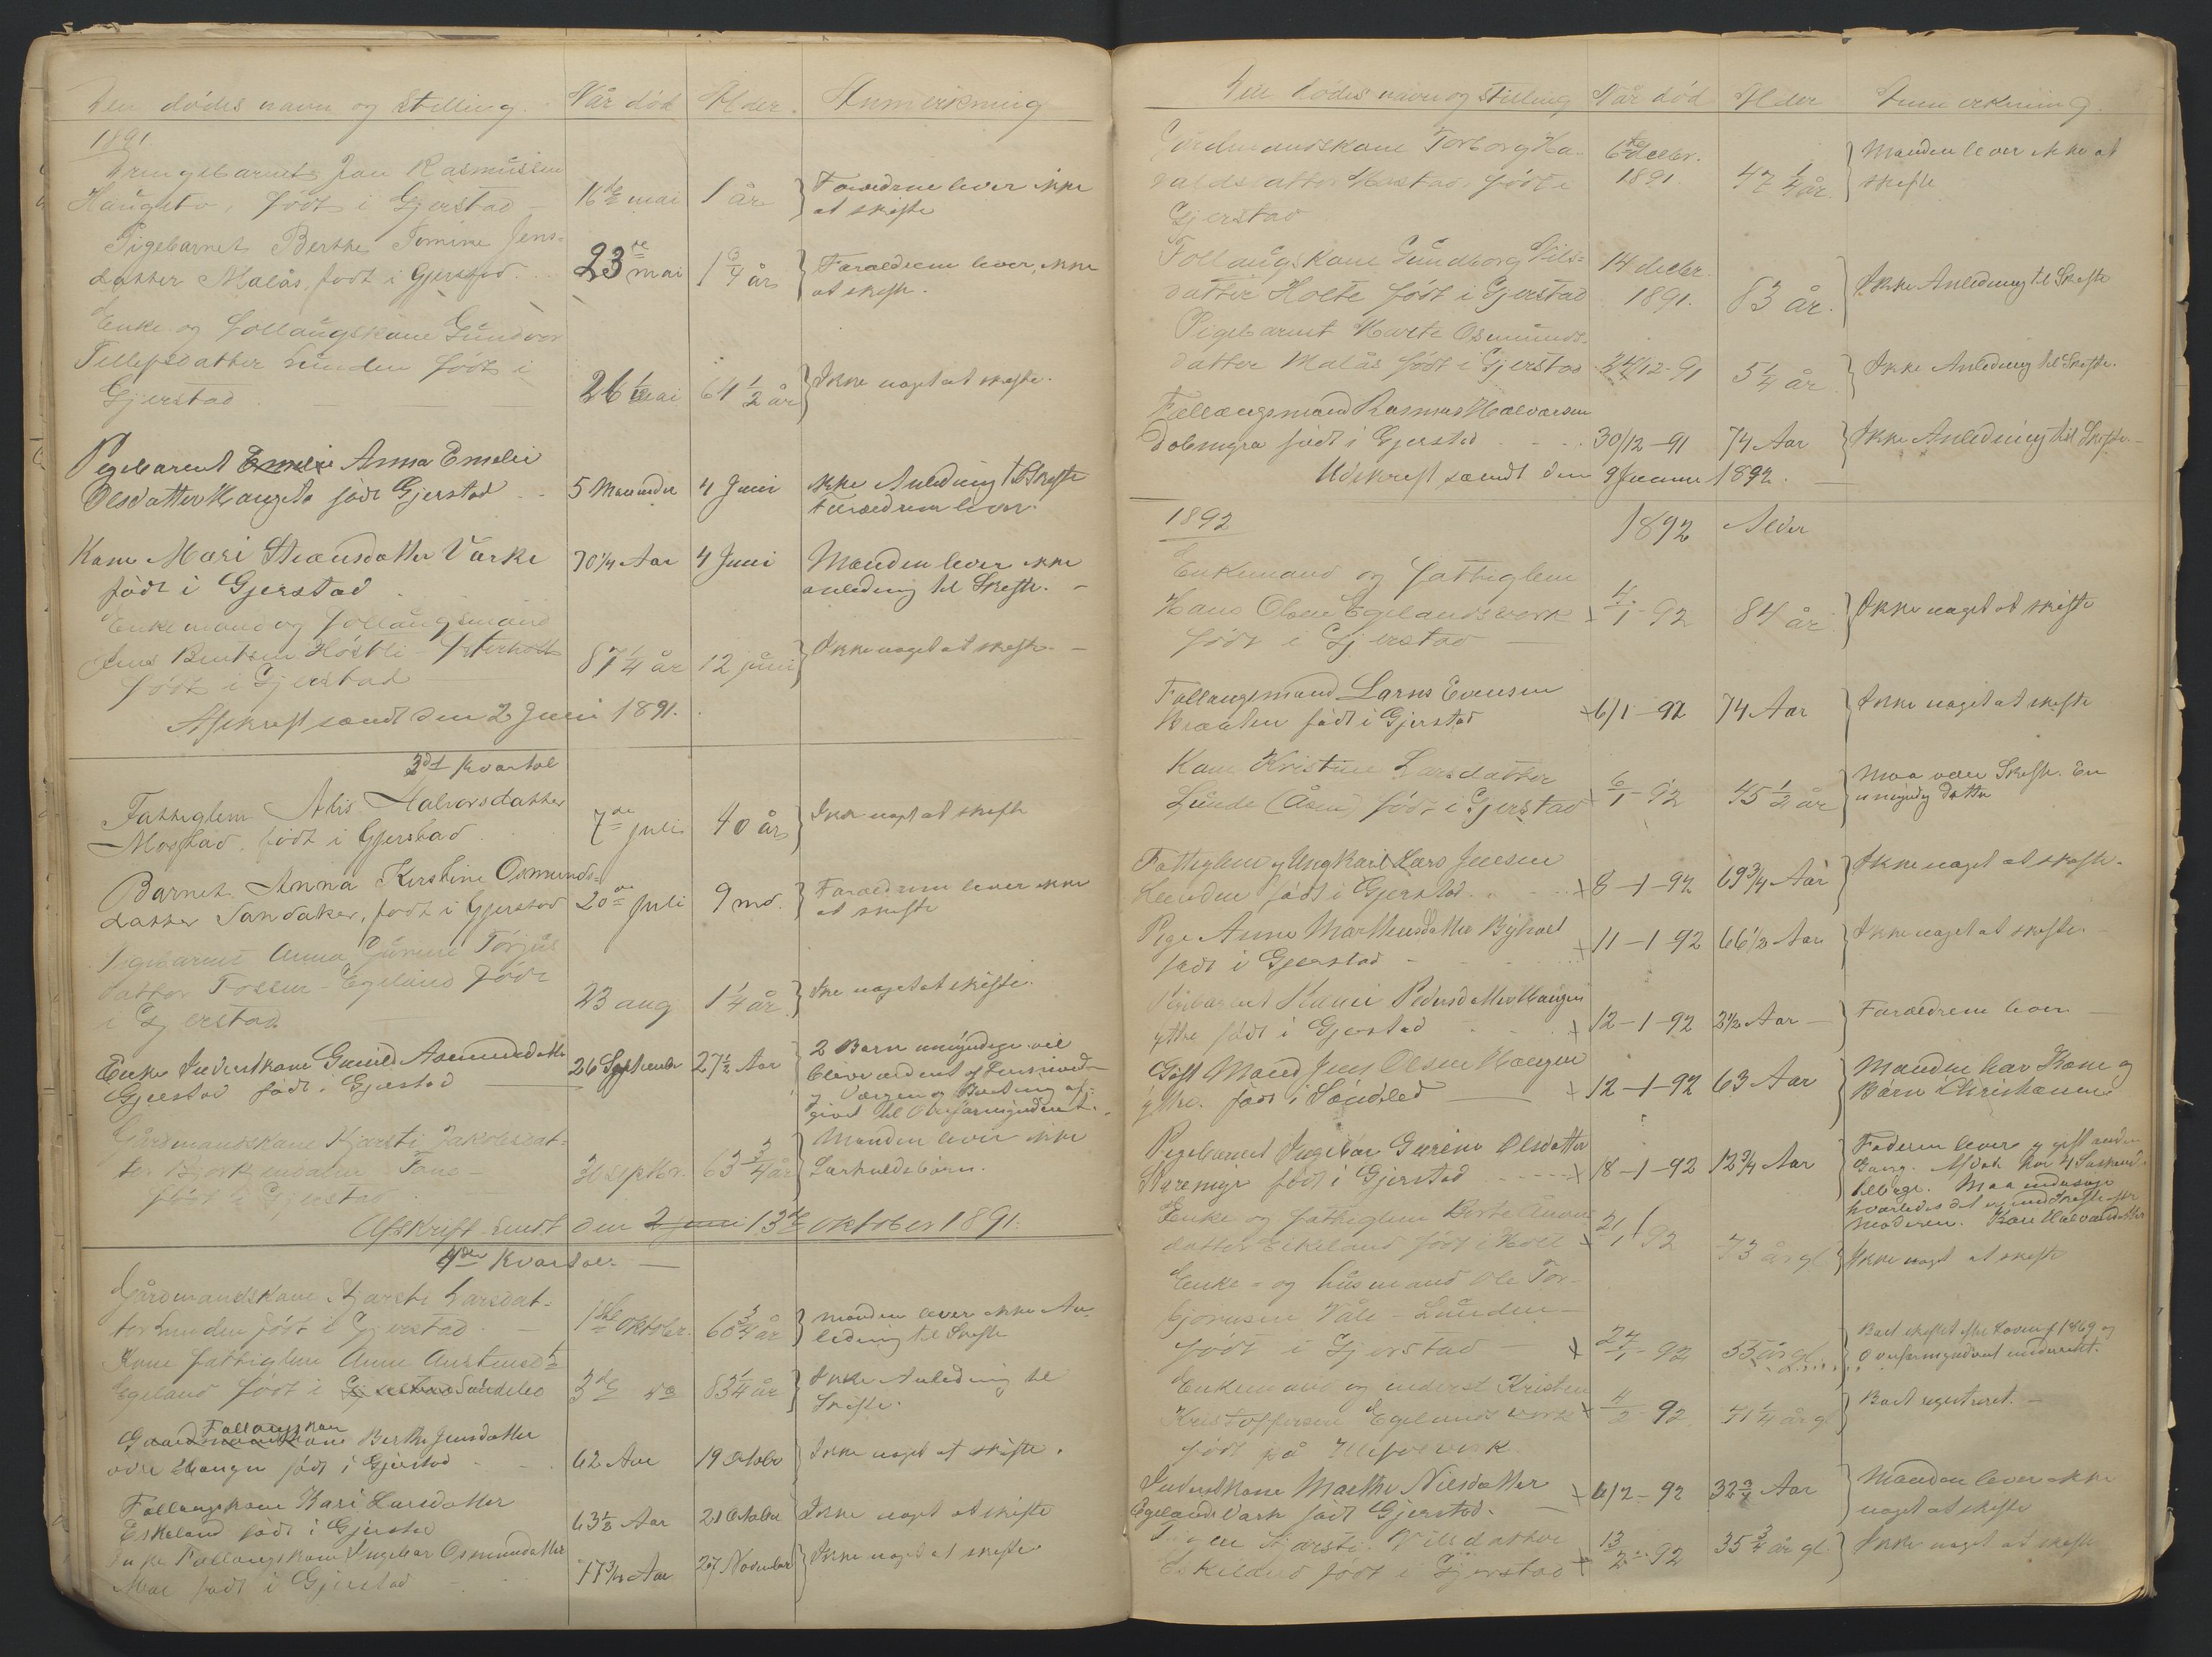 Den dødes navn og Stilling. Når død Alder. Anmerkning
1891
Drengebarnet Jan Rasmussen
Haugeto, født i Gjerstad 16de mai 1 år Forældrene lever ikke
at skifte
Pigebarnet Berthe Tomine Jens=
datter Malås, født i Gjerstad. 23de mai 1 3/4 år Forældrene lever, ikke
at skifte.
Enke og follaugskone Gundvor
Tellefsdatter Lunden født i
Gjerstad 26 mai 64 1/2 år Ikke noget at skifte.
Pigebarnet Emelie Anna Emelie
Olsdatter Haugeto født Gjerstad 5 Maaneder 4 Juni Ikke Anledning til Skifte
Forældrene lever.
Kone Mari Steansdatter Varke
født i Gjerstad 70 1/4 Aar 4 Juni Manden lever ikke
anledning til Skifte. -
Enkemand og follaugsmand
Jens Bentsen Høstli - Østerholt
født i Gjerstad 87 1/4 år 12 juni Ikke noget at skifte. -
Afskrift sendt den 2 Juni 1891.
3die kvartal
Fattiglem Alis Halvorsdatter
Mostad, født i Gjerstad. 7de juli 40 år Ikke noget at skifte
Barnet Anna Kirstine Osmunds=
datter Sandaker, født i Gjerstad 20de Juli 9 md. Forældrene lever ikke
at skifte
Pigebarnet Anna Gurine Torjus
datter Fossen - Egeland født
i Gjerstad 23 aug 1 1/4 år Ikke noget at skifte.
Enke Inderstkone Gunild Aasmundsdatter
Gjerstad født i Gjerstad 26 September 27 1/2 Aar 2 Børn umyndige vil
blive
givet til Overformynderiet.
Gårdmandskone Kjersti Jakobsdat=
ter Bjorkjendalen Tane -
født i Gjerstad 30 septbr. 63 3/4 år Manden lever ikke
Særkuldsbørn.
Afskrift sendt den 2 juni 13de oktober 1891.
4de Kvartal
Gårdmandskone Kjersti Larsdat-
ter Lunden født i Gjerstad. 1ste Oktober. 60 3/4 år manden lever ikke An-
ledning til Skifte
Kone fattiglem Anne Austensdt=
Egeland født i Gjerstad Søndeled 3de do 83 1/4 år Ikke Anledning til
Skifte.
Follaugskone
Gaardmandskone Berthe Jensdatter
øvre Haugen født i Gjerstad 62 Aar 19 Octobr Ikke noget at skifte.
Follaugskone Kari Larsdatter
Eskeland født i Gjerstad 63 1/2 Aar 21 October Ikke noget at skifte
Enke Follaugskone Ingebor Osmundsdatter
Moe født i Gjerstad 77 3/4 Aar 27 November Ikke noget at skifte
Den dødes navn og Stilling Når død Alder Anmerkning.
Gårdmandskone Torborg Ha-
raldsdatter Hustad født i
Gjerstad 6te decbr. 1891. 47 1/4 år. Manden lever ikke at
skifte
Follaugskone Gundborg Nils=
datter Holte født i Gjerstad 14 decbr. 1891. 83 år. Ikke Anledning til Skifte
Pigebarnet Marte Osmunds-
datter Malås født i Gjerstad 24/12-91 5 1/4 år Ikke Anledning til Skifte.
Follaugsmand Rasmus Halvorsen
Dobmyra født i Gjerstad 30/12-91 74 Aar Ikke Anledning til Skifte -
Udskrift sendt den 9 Januar 1892.
1892 1892 Alder
Enkemand og fattiglem
Hans Olsen Egelandsverk
født i Gjerstad x 4/1-92 84 år Ikke noget at skifte
Follaugsmand Lars Evensen
Braaten født i Gjerstad x 6/1-92 74 Aar Ikke noget at skifte
Kone Kristine Larsdatter
Lunde (Åsen) født i Gjerstad x 6/1-92 45 1/2 år Maa være Skifte. En
umyndig datter
Fattiglem og Ungkarl Lars Jensen
Lunden født i Gjerstad x 8-1-92 69 3/4 Aar Ikke noget at skifte.
Pige Anne Marthensdatter Byholt
født i Gjerstad x 11-1-92 66 1/2 Aar Ikke noget at skifte.
Pigebarnet Pedersdatter Haugen
ytre født i Gjerstad x 12-1-92 2 1/2 Aar Forældrene lever. -
Gift Mand Jens Olsen Haugen
ytre. født i Søndeled x 12-1-92 63 Aar Manden har Kone og
Børn i Christiania.
Pigebarnet Ingebor Gurine Olsdatter
Støremyr født i Gjerstad x 18-1-92 12 3/4 Aar Faderen lever og gift anden
Gang. Afdøde har 4 Søskende
tilbage. Maa undersøge
hvorledes det er med Skifte efter
moderen. Kari Halvorsdatter
Enke og fattiglem Berte Aanen
datter Eikeland født i Holt x 21/1 92 73 år gl. Ikke noget at skifte
Enke- og husmand Ole Tor-
bjørnsen Våle - Lunden -
født i Gjerstad x 24/1-92 55 år gl. Boet skiftet efter Loven af 1869 og
Overformynderiet underrettet.
Enkemand og inderst Kristen
Kristoffersen Egelands verk
født på Ulefosverk x 4/2 92 41 1/4 år gl Boet registreret. -
Inderstkone Marthe Nilsdatter
Egelands Værk født Gjerstad. x 6/2-92 32 3/4 Aar Manden lever ikke
noget at skifte
Pigen Kjersti Nilsdatter
Eskeland født i Gjerstad x 13/2-92 35 3/4 år gl. Ikke noget at skifte